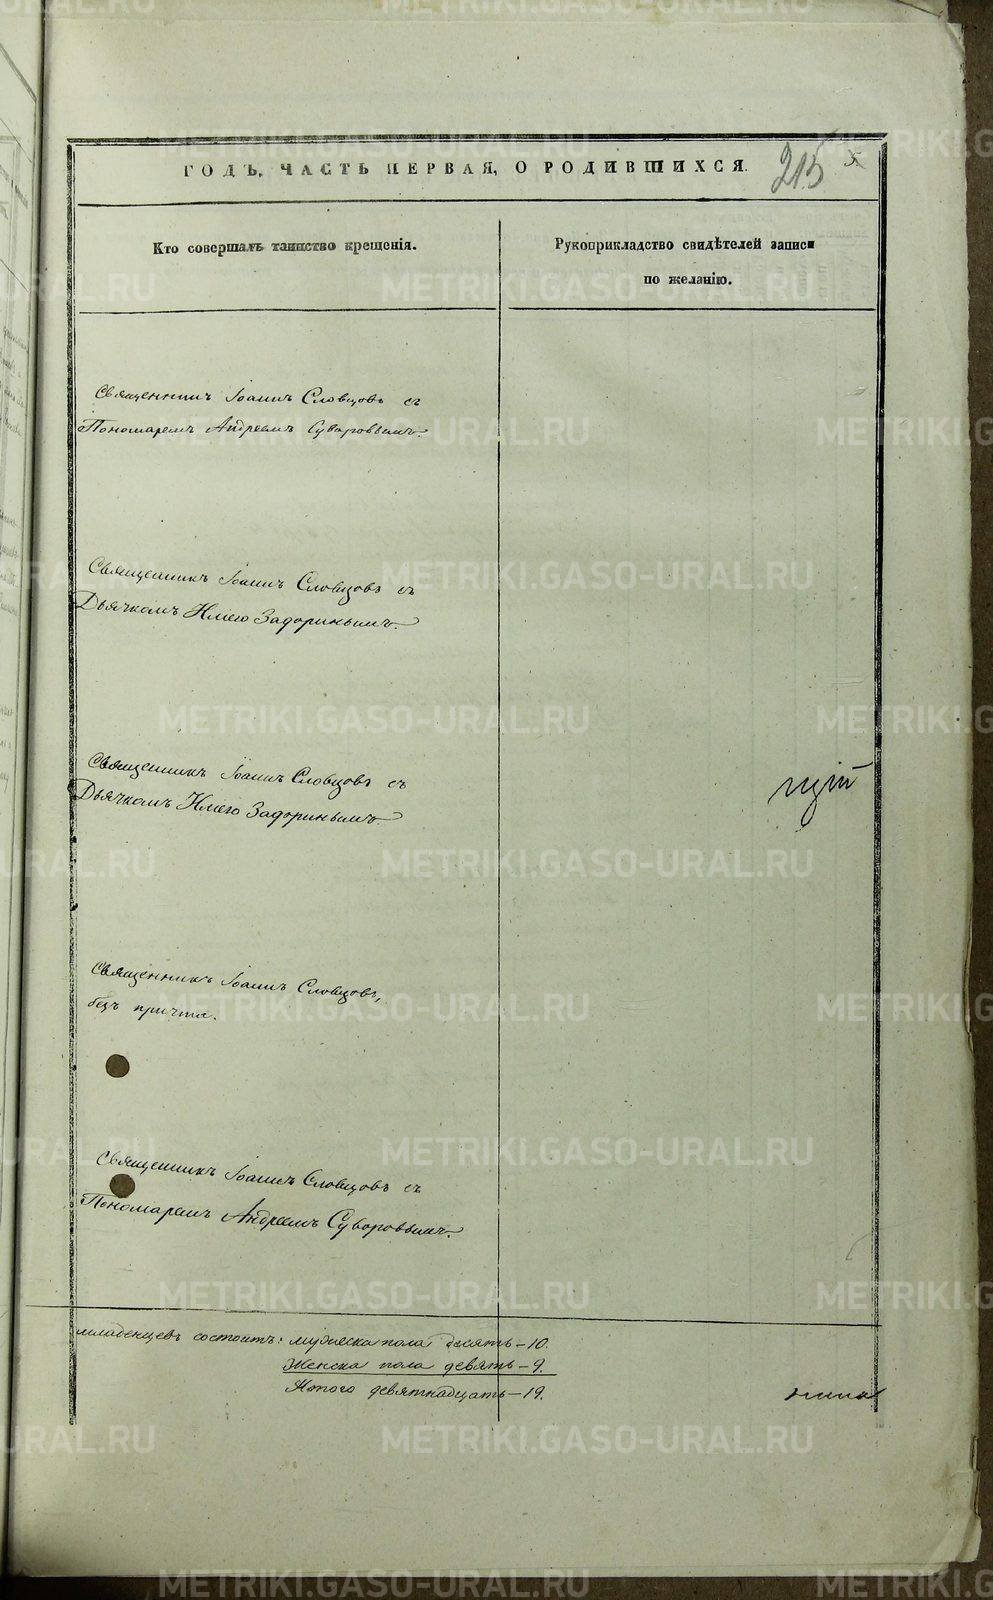 ГОДЪ, ЧАСТЬ ПЕРВАЯ, О РОДИВШИХСЯ.
215
5.
Кто совершалъ таинство крещенія.
Рукоприкладство свидѣтелей записи
по желанію.
Священникъ Іоаннъ Словцовъ съ
Пономаремъ Андреемъ Суворовымъ.
Священникъ Іоаннъ Словцовъ съ
Дьячкомъ Задоринымъ.
Священникъ Іоаннъ Словцовъ съ
Дьячкомъ Задоринымъ.
Священникъ Іоаннъ Словцовъ,
безъ причта.
Священникъ Іоаннъ Словцовъ съ
Пономаремъ Андреемъ Суворовымъ.
младенцевъ состоитъ: мужеска пола десять – 10.
Женска пола девять – 9.
Итого девятнадцать – 19.
METRIKI.GASO-URAL.RU